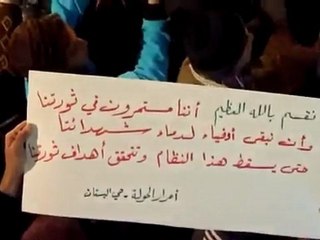 نقسم بالله العظيم أننا مستمرون في ثورتنا
وأن نبقى أوفياء لدماء شهدائنا
حتى يسقط هذا النظام وتتحقق أهداف ثورتنا
أحرار الحولة - حي البستان